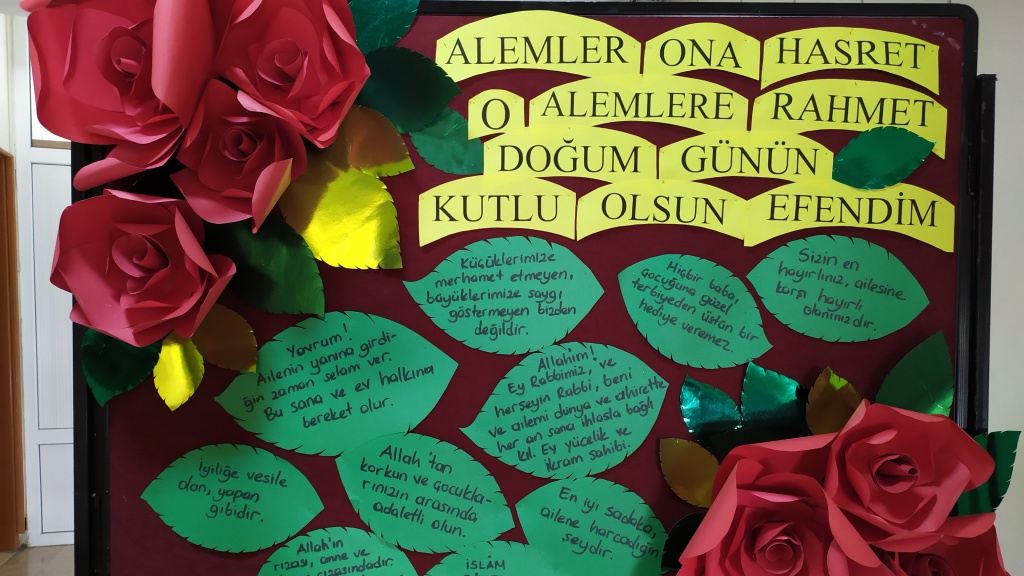 ALEMLER ONA HASRET
O ALEMLERE RAHMET
DOĞUM GÜNÜN
KUTLU OLSUN EFENDİM
Küçüklerimize
merhamet etmeyen,
büyüklerimize saygı
göstermeyen bizden
değildir.
Hiçbir baba,
çocuğuna güzel
terbiyeden üstün bir
hediye veremez.
Sizin en
hayırlınız, ailesine
karşı hayırlı
olanınızdır.
Yavrum!
Ailenin yanına girdi-
ğin zaman selam ver.
Bu sana ve ev halkına
bereket olur.
Allahım!
Ey Rabbimiz, ve
herşeyin Rabbi, beni
ve ailemi dünya ve ahirette
her an sana ihlasla bağlı
kıl. Ey yücelik ve
ikram sahibi.
İyiliğe vesile
olan, yapan
gibidir.
Allah'tan
korkun ve çocukla-
rınızın arasında
adaletli olun.
En iyi sadaka,
ailene harcadığın
şeydir.
Allah'ın
rızası, anne ve
rızasındadır.
İSLAM